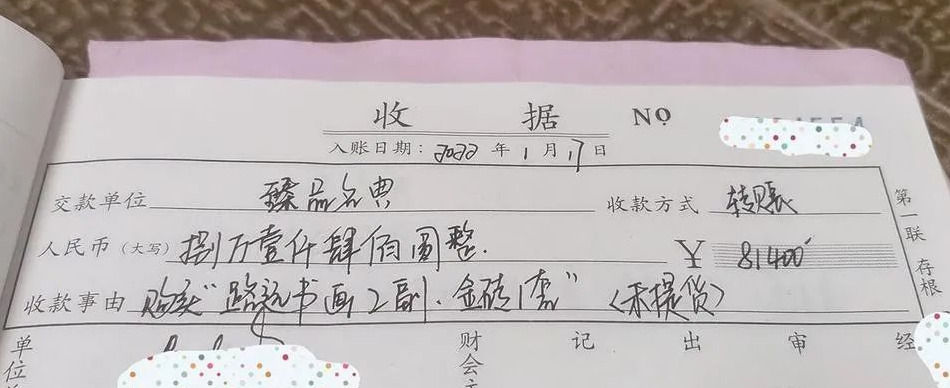 收据 NO
入账日期：2022年1月17日
交款单位 臻品名典 收款方式 转账
人民币（大写） 捌万壹仟肆佰圆整. ￥ 81400
收款事由 购买"路远书画2副.金砖1套"（未提货）
第一联 存根
单位 财会 记 出 审 经